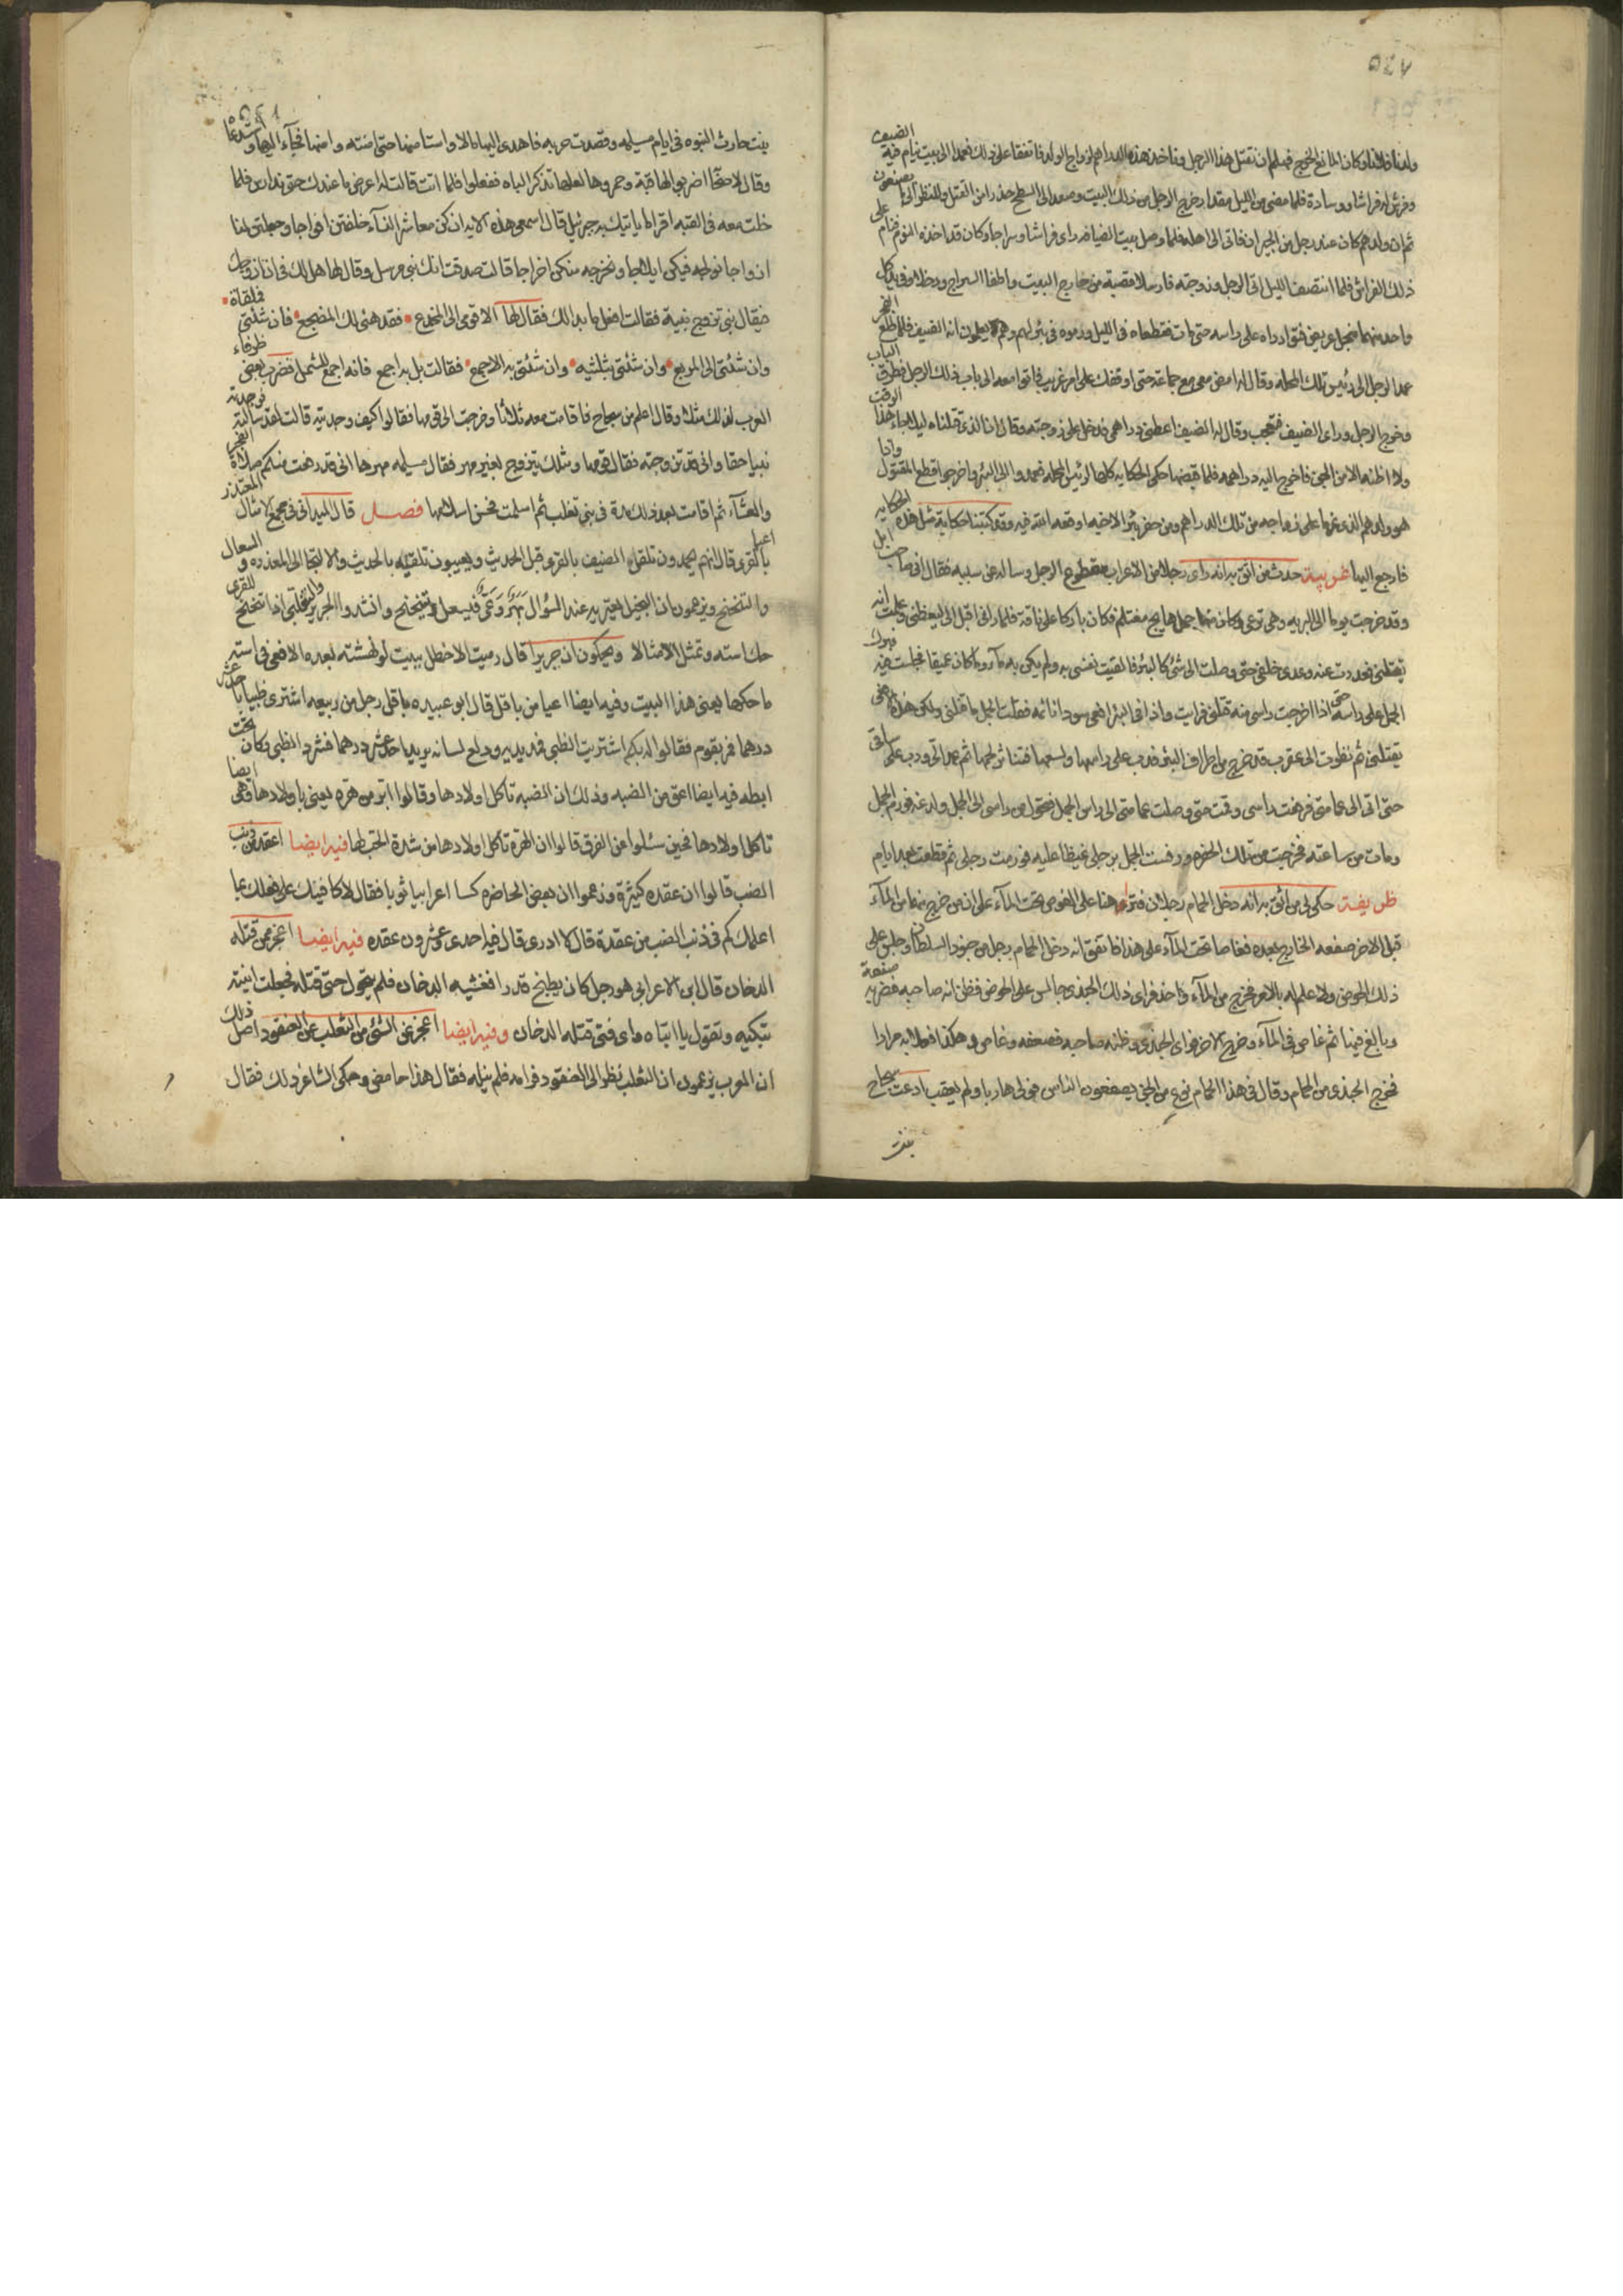 ٥٤٧
ولدنا فلانا وكان المانع الخرج فهلم ان نقتل هذا الرجل وناخذ هذه الدراهم لزواج الولد فاتفقا على ذلك فعمدا الى بيت ينام فيه الضيف
وفرش له فراشا ووسادة فلما مضى من الليل مقدار خرج الرجل من ذلك البيت وصعد الى السطح حذرا من القتل ولينظر الى ما يصنعون
ثم ان ولدهم كان عند رجل من الجيران فاتى الى اهله فلما وصل بيت الضيافه راى فراشا وسراجا وكان قد اخذه النوم فنام على
ذلك الفراش فلما انتصف الليل اتى الرجل وزوجته من خارج البيت واطفا السراج ودخلا وفي يد كل
واحد منهما على راسه حتى مات فقطعاه في الليل ورموه في بئر لهم وهم يعلمون انه الضيف فلما طلع الفجر
عمد الرجل الى رئيس تلك المحله وقال له امض معى مع جماعة حتى اوقفك على امر غريب فاتوا معه الى باب ذلك الرجل فطرق الباب
وخرج الرجل وراى الضيف فتعجب وقال له الضيف اعطنى دراهمى فدخل على زوجته وقال ان الذى قتلناه ليلا جاء هذا الوقت
ولا اظنه الا من الجن فاخرج اليه دراهمه فلما قبضها حكى الحكايه كلها لرئيس المحله فعمدوا الى البئر واخرجوا قطع المقتول واذا
هو ولدهم الذى عزما على زواجه من تلك الدراهم ومن حفر بئرا لاخيه اوقعه الله فيه وقد كتبنا حكاية مثل هذه الحكايه
فارجع اليها غريبة حدث من اثق به انه راى رجلا من الاعراب مقطوع الرجل وساله عن سببه فقال انى صاحب ابل
وقد خرجت يوما الى البريه وهى ترعى وكان فيها جمل هايج مغتلم فكان باركا على ناقة فلما رانى اقبل الى ليعظنى وعلمت انه
يقتلنى فعدوت عنه وعدى خلفى حتى وصلت الى شئ كالبئر فالقيت نفسى به ولم يكن به مآء وما كان عميقا فجلست فيه فبرك
الجمل على راسه حتى اذا اخرجت راسى منه قتلنى فرايت واذا فى البئر افعى سودا نائمه فقلت الجمل ما قتلنى ولكن هذه الافعى
تقتلنى ثم نظرت الى عقرب قد خرج من اطراف البئر فدب على راسها ولسعها فتناثر لحمها ثم عمد الى ودب على ساقى
حتى اتى الى عمامتى فرفعت راسى وقمت حتى وصلت عمامتى الى راس الجمل فتحول من راسى الى الجمل ولدغه فورم الجمل
ومات من ساعته فخرجت من تلك الحفره ورفست الجمل برجلى غيظا عليه فورمت رجلى ثم قطعت بعد ايام
ظريفة حكى لى من اثق به انه دخل الحمام رجلان فتراهنا على الغوص تحت المآء على ان من خرج منهما من المآء
قبل الاخر صفعه الخارج بعده فغاصا تحت المآء على هذا فاتفق انه دخل الحمام رجل من جنود السلطان وجلس على
ذلك الحوض ولا علم له بالامر فخرج من المآء واحد فراى ذلك الجندى جالس على الحوض فظن انه صاحبه فضربه صفعة
وبالغ فيها ثم غاص فى المآء وخرج الاخر فراى الجندى وظنه صاحبه فصفعه وغاص وهكذا فعلا به مرارا
فخرج الجندى من الحمام وقال فى هذا الحمام نوع من الجن يصفعون الناس فولى هاربا ولم يعقب ادعت سجاح
بنت
٥٤١
بنت حارث النبوه فى ايام مسيلمه وقصدت حربه فاهدى اليها مالا واستامنها حتى امنته وامنها فجآء اليها واستدعاها
وقال لاصحابه اضربوا لها قبة وجمروها لعلها تذكر الباه ففعلوا فلما اتت قالت له اعرض ما عندك حتى نتدارس فلما
خلت معه فى القبه اقرا لى ما ياتيك به جبرئيل قال اسمعى هذه الايه انكن معاشر النسآء خلقتن افواجا وجعلتن لنا
ازواجا نولجه فيكن ايلاجا ونخرجه منكن اخراجا قالت صدقت انك نبى مرسل وقال لها هل لك فى ان ازوجك
فيقال نبى تزوج نبية فقالت افعل ما بدا لك فقال لها الا قومى الى المخدع فقد هئى لك المضجع فان شئتى فلقاة
وان شئتى الى المربع وان شئتى بثلثيه وان شئتى به الاجمع فقالت بل به اجمع فانه اجمع للشمل فضرب بعض ظرفاء
العرب لذلك مثلا وقال اغلم من سجاح فاقامت معه ثلاثا وخرجت الى قومها فقالوا كيف وجدتيه قالت لقد سالته فوجدته
نبيا حقا وانى قد تزوجته فقال قومها ومثلك يتزوج بغير مهر فقال مسيلمه مهرها انى قد رفعت عنكم صلاة الفجر
والعشآء ثم اقامت بعد ذلك مدة فى بنى تغلب ثم اسلمت فحسن اسلامها فصل قال الميدانى فى مجمع الامثال المعتذر
بالقرى قال انهم يحمدون تلقى الضيف بالقرى قبل الحديث ويعيبون تلقيه بالحديث والالتجا الى المعذره والسعال
والتنحنح ويزعمون ان البخيل يعتريه عند السؤال بهر وعى فيسعل ويتنحنح وانشدوا لجرير والتغلبى اذا تنحنح للقرى
حك استه وتمثل الامثالا ويحكون ان جريرا قال رميت الاخطل ببيت لو نهشته بعده الافعى فى استه
ما حكها يعنى هذا البيت وفيه ايضا اعيا من باقل قال ابو عبيده باقل رجل من ربيعه اشترى ظبيا باحد عشر
درهما فمر بقوم فقالوا له بكم اشتريت الظبى فمد يديه ودلع لسانه يريد احد عشر درهما فشرد الظبى وكان تحت
ابطه فيه ايضا اعق من الضبه وذلك ان الضبه تاكل اولادها وقالوا ابر من هره يعنى باولادها وهى ايضا
تاكل اولادها فحين سئلوا عن الفرق قالوا ان الهرة تاكل اولادها من شدة الحب لها فيه ايضا اعقد من ذنب
الضب قالوا ان عقده كثيرة وزعموا ان بعض الحاضره كسا اعرابيا ثوبا فقال لاكافينك على فعلك بما
اعلمك كم فى ذنب الضب من عقدة قال لا ادرى قال فيه احدى وعشرون عقده فيه ايضا اعجز ممن قتله
الدخان قال ابن الاعرابى هو رجل كان يطبخ قدرا فغشيه الدخان فلم يتحول حتى قتله فجعلت ابنته
تبكيه وتقول يا ابتاه واى فتى قتله الدخان وفيه ايضا اعجز عن الشئ من الثعلب عن العنقود اصل ذلك
ان العرب يزعمون ان الثعلب نظر الى العنقود فرامه فلم ينله فقال هذا حامض وحكى الشاعر ذلك فقال